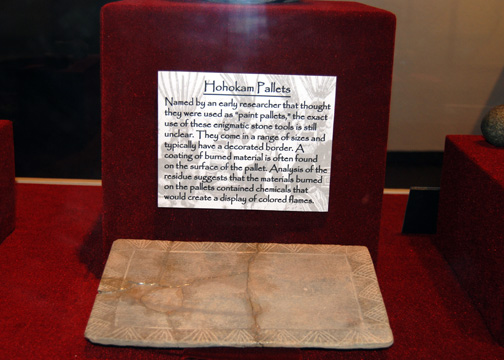 Hohokam Pallets
Named by an early researcher that thought
they were used as "paint pallets," the exact
use of these enigmatic stone tools is still
unclear. They come in a range of sizes and
typically have a decorated border. A
coating of burned material is often found
on the surface of the pallet. Analysis of the
residue suggests that the materials burned
on the pallets contained chemicals that
would create a display of colored flames.